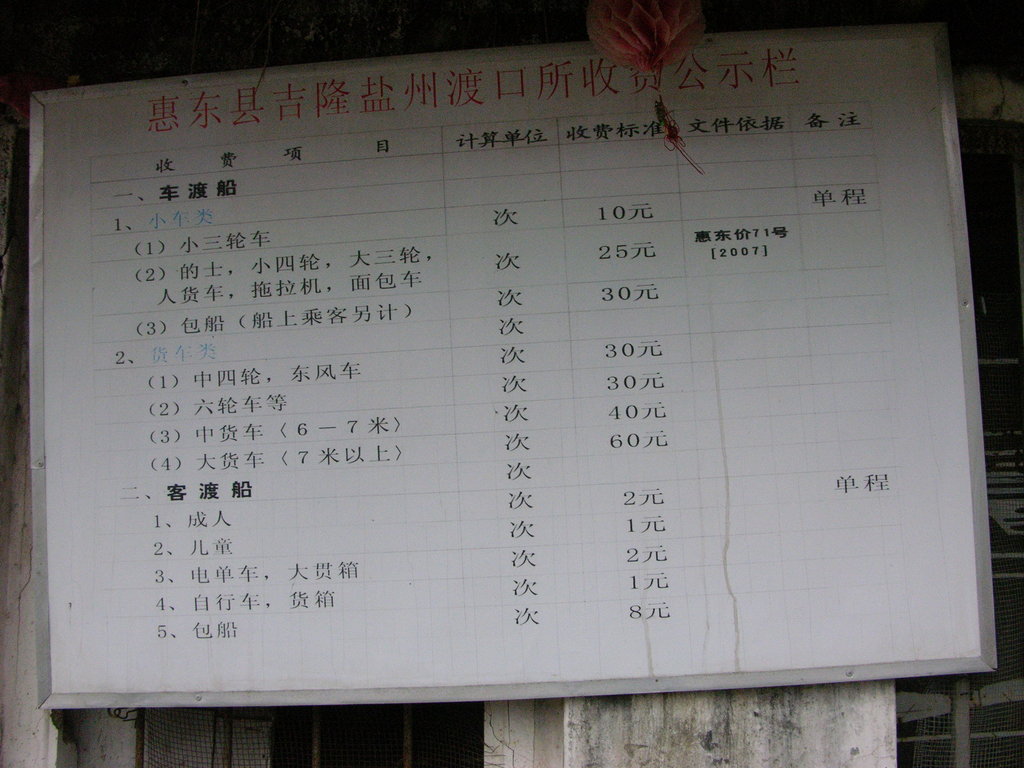 惠东县吉隆盐州渡口所收费公示栏
收费项目 计算单位 收费标准 文件依据 备注
一、车渡船
1、小车类 单程
（1）小三轮车 次 10元
（2）的士，小四轮，大三轮， 次 25元 惠东价71号
人货车，拖拉机，面包车 [2007]
（3）包船（船上乘客另计） 次 30元
2、货车类 次
（1）中四轮，东风车 次 30元
（2）六轮车等 次 30元
（3）中货车〈6－7米〉 次 40元
（4）大货车〈7米以上〉 次 60元
二、客渡船 次 单程
1、成人 次 2元
2、儿童 次 1元
3、电单车，大贯箱 次 2元
4、自行车，货箱 次 1元
5、包船 次 8元